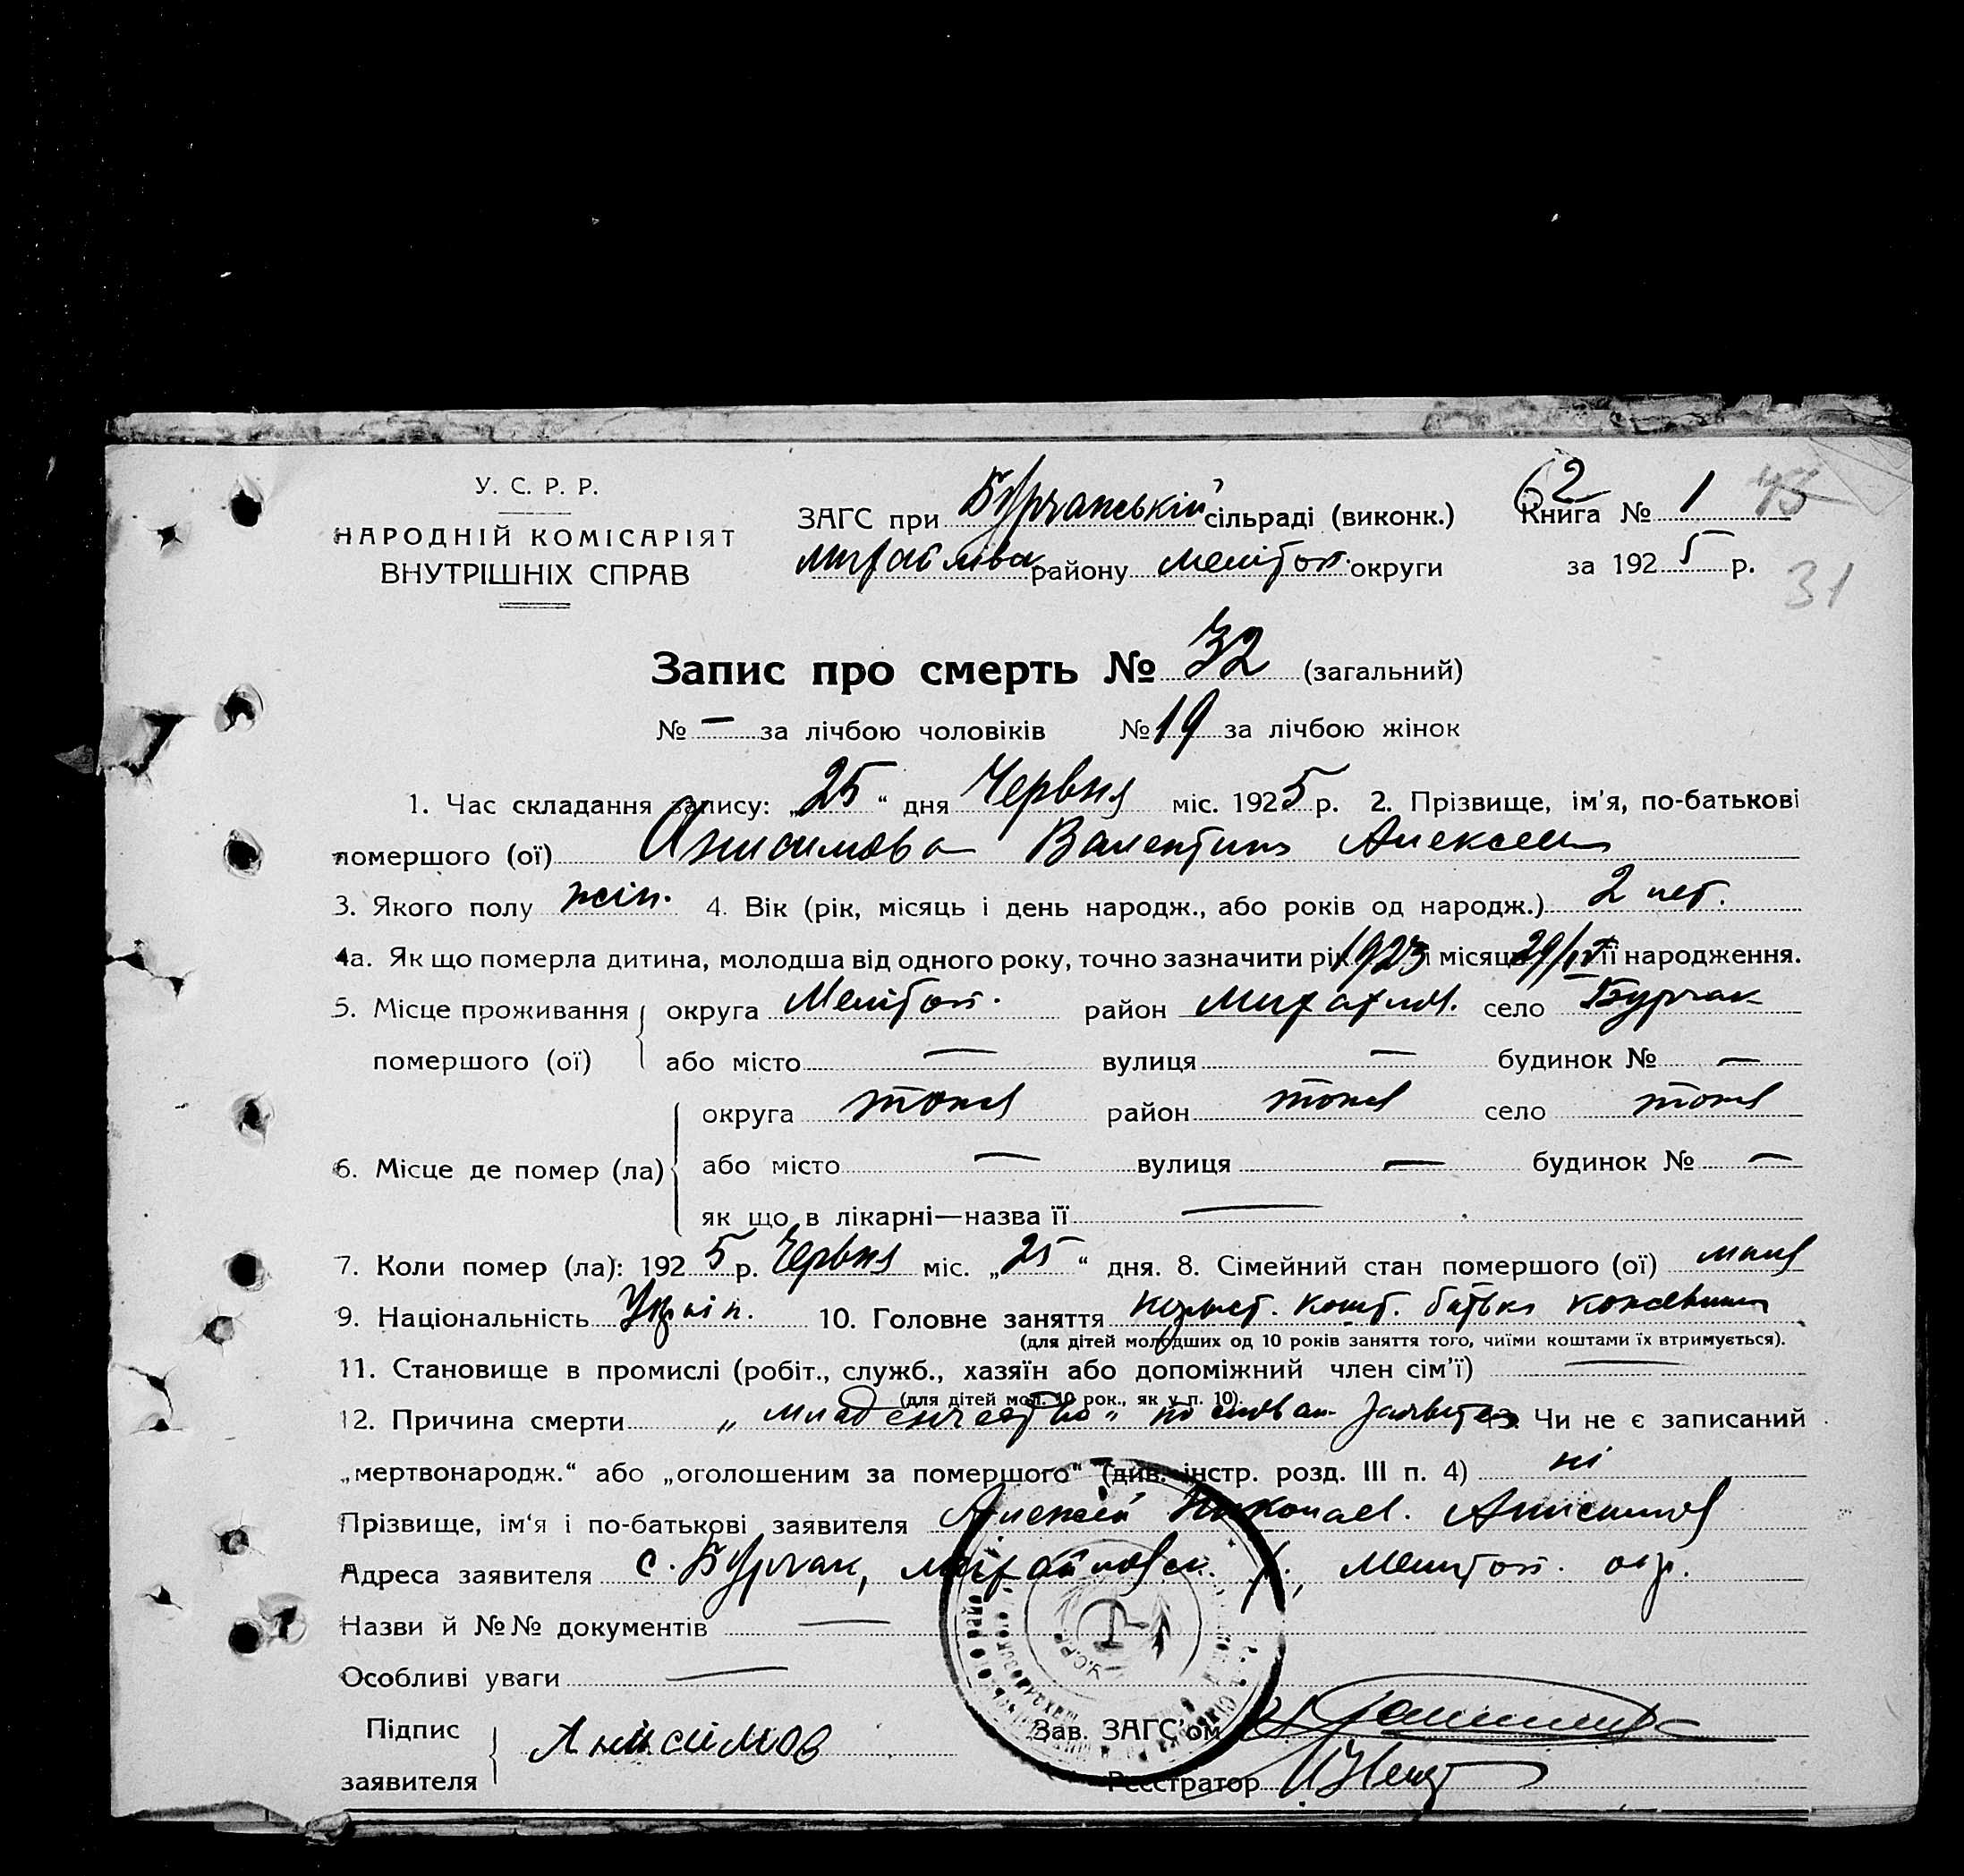 У. С. Р. Р.
НАРОДНІЙ КОМІСАРІЯТ
ВНУТРІШНІХ СПРАВ
ЗАГС при Бурчанській сільраді (виконк.)
Михайлівск. району Меліtoп. округи
62
Книга № 1 45
за 1925 р.
31
Запис про смерть № 32 (загальний)
№ — за лічбою чоловіків № 19 за лічбою жінок
1. Час складання запису: „25“ дня Червня міс. 1925 р. 2. Прізвище, ім'я, по-батькові
помершого (ої) Анисимова Валентина Алексеев
3. Якого полу жін. 4. Вік (рік, місяць і день народж., або років од народж.) 2 лет.
4а. Як що померла дитина, молодша від одного року, точно зазначити рік 1923 і місяць 29/IV її народження.
5. Місце проживання округа Меліtoп. район Михайлов. село Бурчак
помершого (ої) або місто — вулиця — будинок № —
округа тоже район тоже село тоже
6. Місце де помер (ла) або місто — вулиця — будинок № —
як що в лікарні—назва її —
7. Коли помер (ла): 1925 р. Червня міс. „25“ дня. 8. Сімейний стан помершого (ої)
9. Національність Україн. 10. Головне заняття корист. кошт. батька
(для дітей молодших од 10 років заняття того, чиїми коштами їх втримується).
11. Становище в промислі (робіт., служб., хазяїн або допоміжний член сім'ї) —
(для дітей мол. 10 рок., як у п. 10).
12. Причина смерти „младенчество“ по словам заявител 13. Чи не є записаний
„мертвонародж.“ або „оголошеним за помершого“ (див. інстр. розд. III п. 4) ні
Прізвище, ім'я і по-батькові заявителя Алексей Николаев. Анисимов
Адреса заявителя с. Бурчак, Михайловск. р., Мелитоп. окр.
Назви й №№ документів —
Особливі уваги —
Підпис
заявителя Анисимов
Зав. ЗАГС'ом
Реєстратор
У.С.Р.Р.